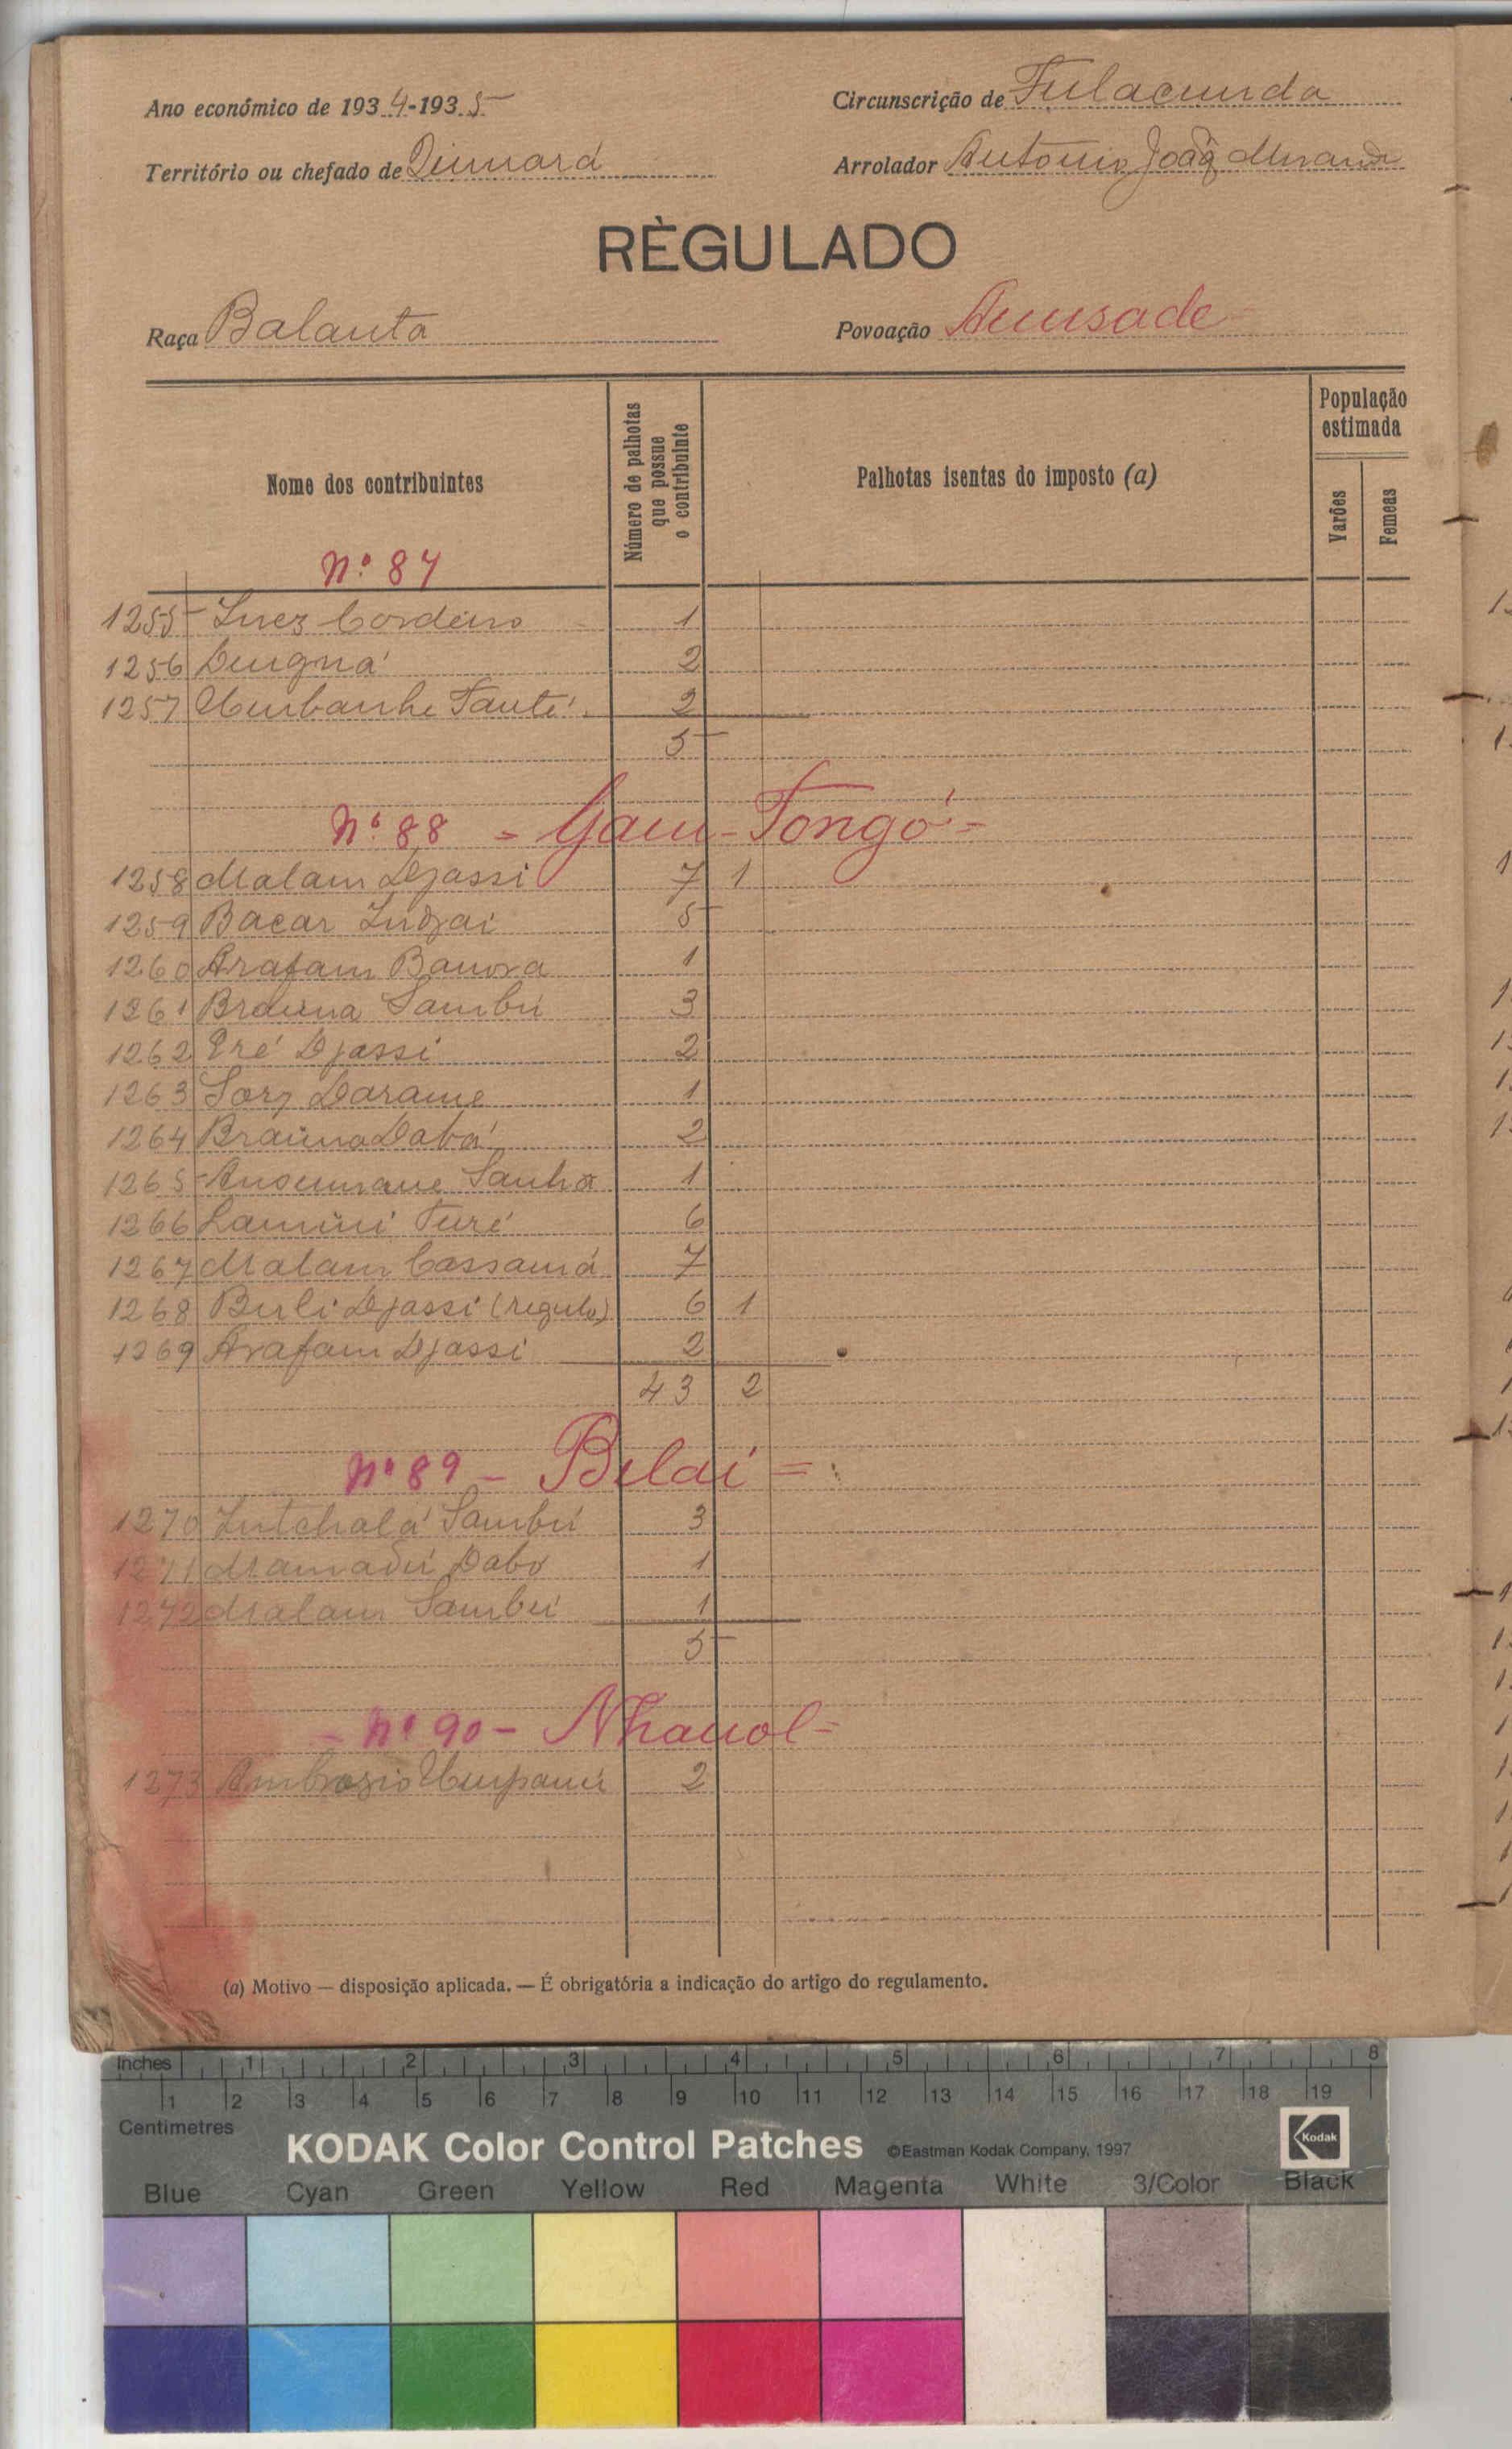 Ano económico de 1934-1935
Circunscrição de Fulacunda
Território ou chefado de
Arrolador Antonio João Miranda
RÈGULADO
Raça Balanta
Povoação
Nome dos contribuintes
Número de palhotas que possue o contribuinte
Palhotas isentas do imposto (a)
População estimada
Varões
Femeas
Nº 87
1255 Inez Cordeiro 1
1256 2
1257 2
5
Nº 88 - Gam-Tongó =
1258 Malam Djassi 7 1
1259 Bacar Indjai 5
1260 Arafam 1
1261 Braima Sambú 3
1262 Djassi 2
1263 Sory Darame 1
1264 Braima Dabó 2
1265 Ansumane Sanhá 1
1266 Lamini Turé 6
1267 Malam Cassamá 7
1268 Buli Djassi (regulo) 6 1
1269 Arafam Djassi 2
43 2
Nº 89 - Belai =
1270 Intchalá Sambú 3
1271 Mamadú Dabo 1
1272 Malam Sambú 1
5
- Nº 90 - Nhauol =
1273 Ambrozio 2
(a) Motivo — disposição aplicada. — É obrigatória a indicação do artigo do regulamento.
Inches 1 2 3 4 5 6 7 8
1 2 3 4 5 6 7 8 9 10 11 12 13 14 15 16 17 18 19
Centimetres
KODAK Color Control Patches ©Eastman Kodak Company, 1997 Kodak
Blue Cyan Green Yellow Red Magenta White 3/Color Black